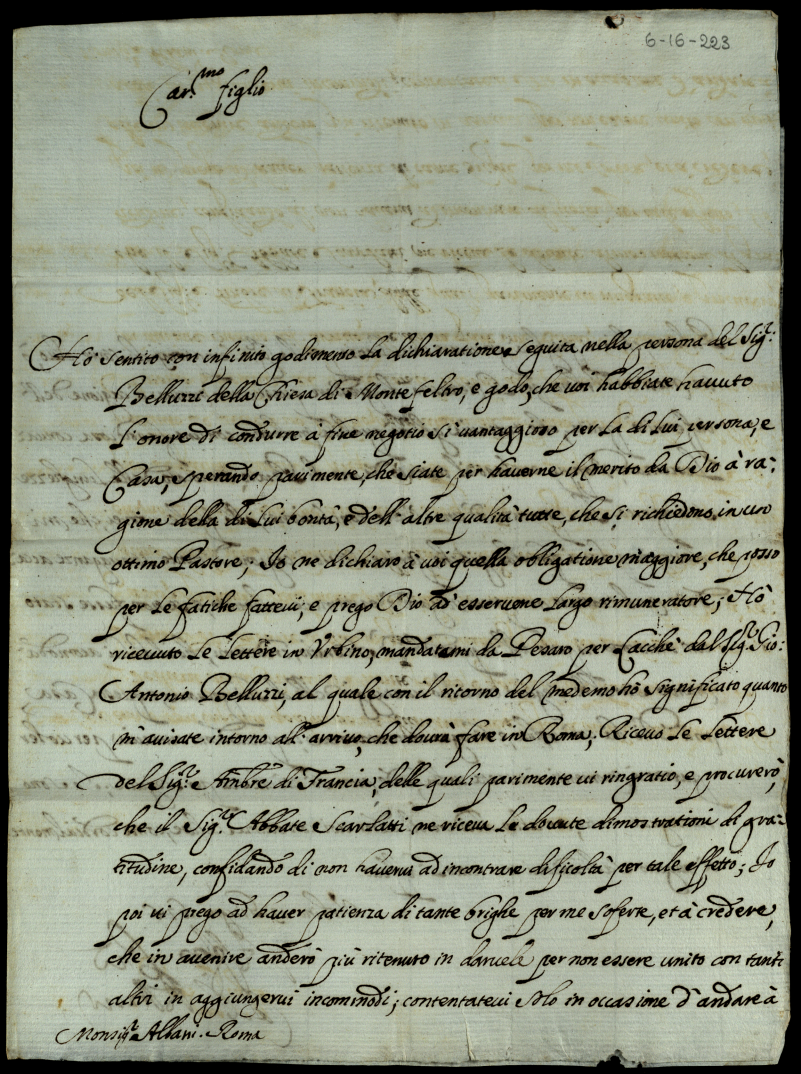 6-16-223
Car.mo figlio
Hò sentito con infinito godimento la dichiaratione seguita nella persona del Sig.r
Belluzzi della Chiesa di Monte feltro, e godo, che voi habbiate havuto
l'onore di condurre à fine negotio sì vantaggioso per la di lui persona, e
Casa, sperando parimente, che siate per haverne il merito da Dio à ra-
gione della di lui bontà, e dell'altre qualità tutte, che si richiedono in un
ottimo Pastore; Io ne dichiaro à voi quella obligatione maggiore, che posso
per le fatiche fattevi, e prego Dio ad esservene largo rimuneratore; Hò
ricevuto le lettere in Urbino, mandatami da Pesaro per Lacchè dal Sig.r Gio:
Antonio Belluzzi, al quale con il ritorno del medemo hò significato quanto
m'avisate intorno all'arrivo, che dovrà fare in Roma; Ricevo le lettere
del Sig.r Ambre di Francia, delle quali parimente vi ringratio, e procurerò,
che il Sig.r Abbate Scarlatti ne riceva le dovute dimostrationi di gra-
titudine, confidando di non havervi ad incontrare dificoltà per tale effetto; Io
poi vi prego ad haver patienza di tante brighe per me soferte, et à credere,
che in avenire anderò più ritenuto in darvele per non essere unito con tanti
altri in aggiungervi incommodi; contentatevi solo in occasione d'andare à
Monsig.r Albani. Roma